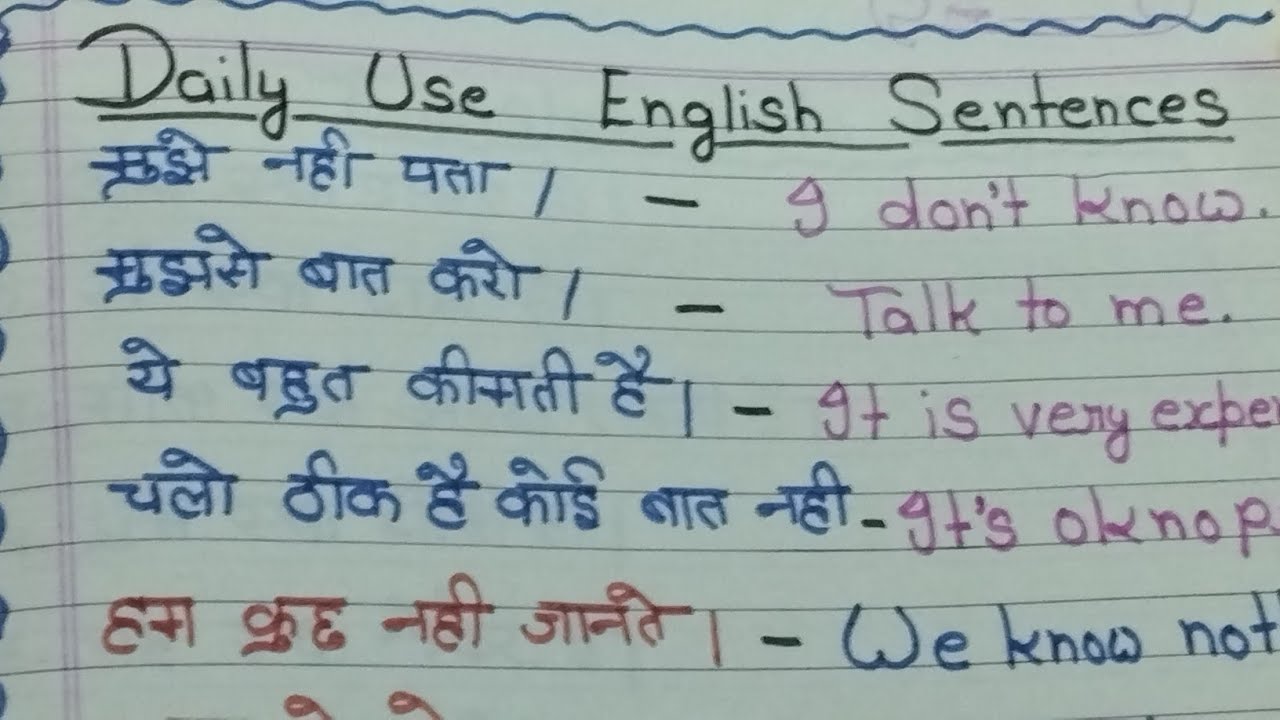 Daily Use English Sentences
मुझे नही पता । - I don't know.
मुझसे बात करो । - Talk to me.
ये बहुत कीमती है । - It is very expe
चलो ठीक है कोई बात नही - It's ok no p
हम कुछ नही जानते । - We know not